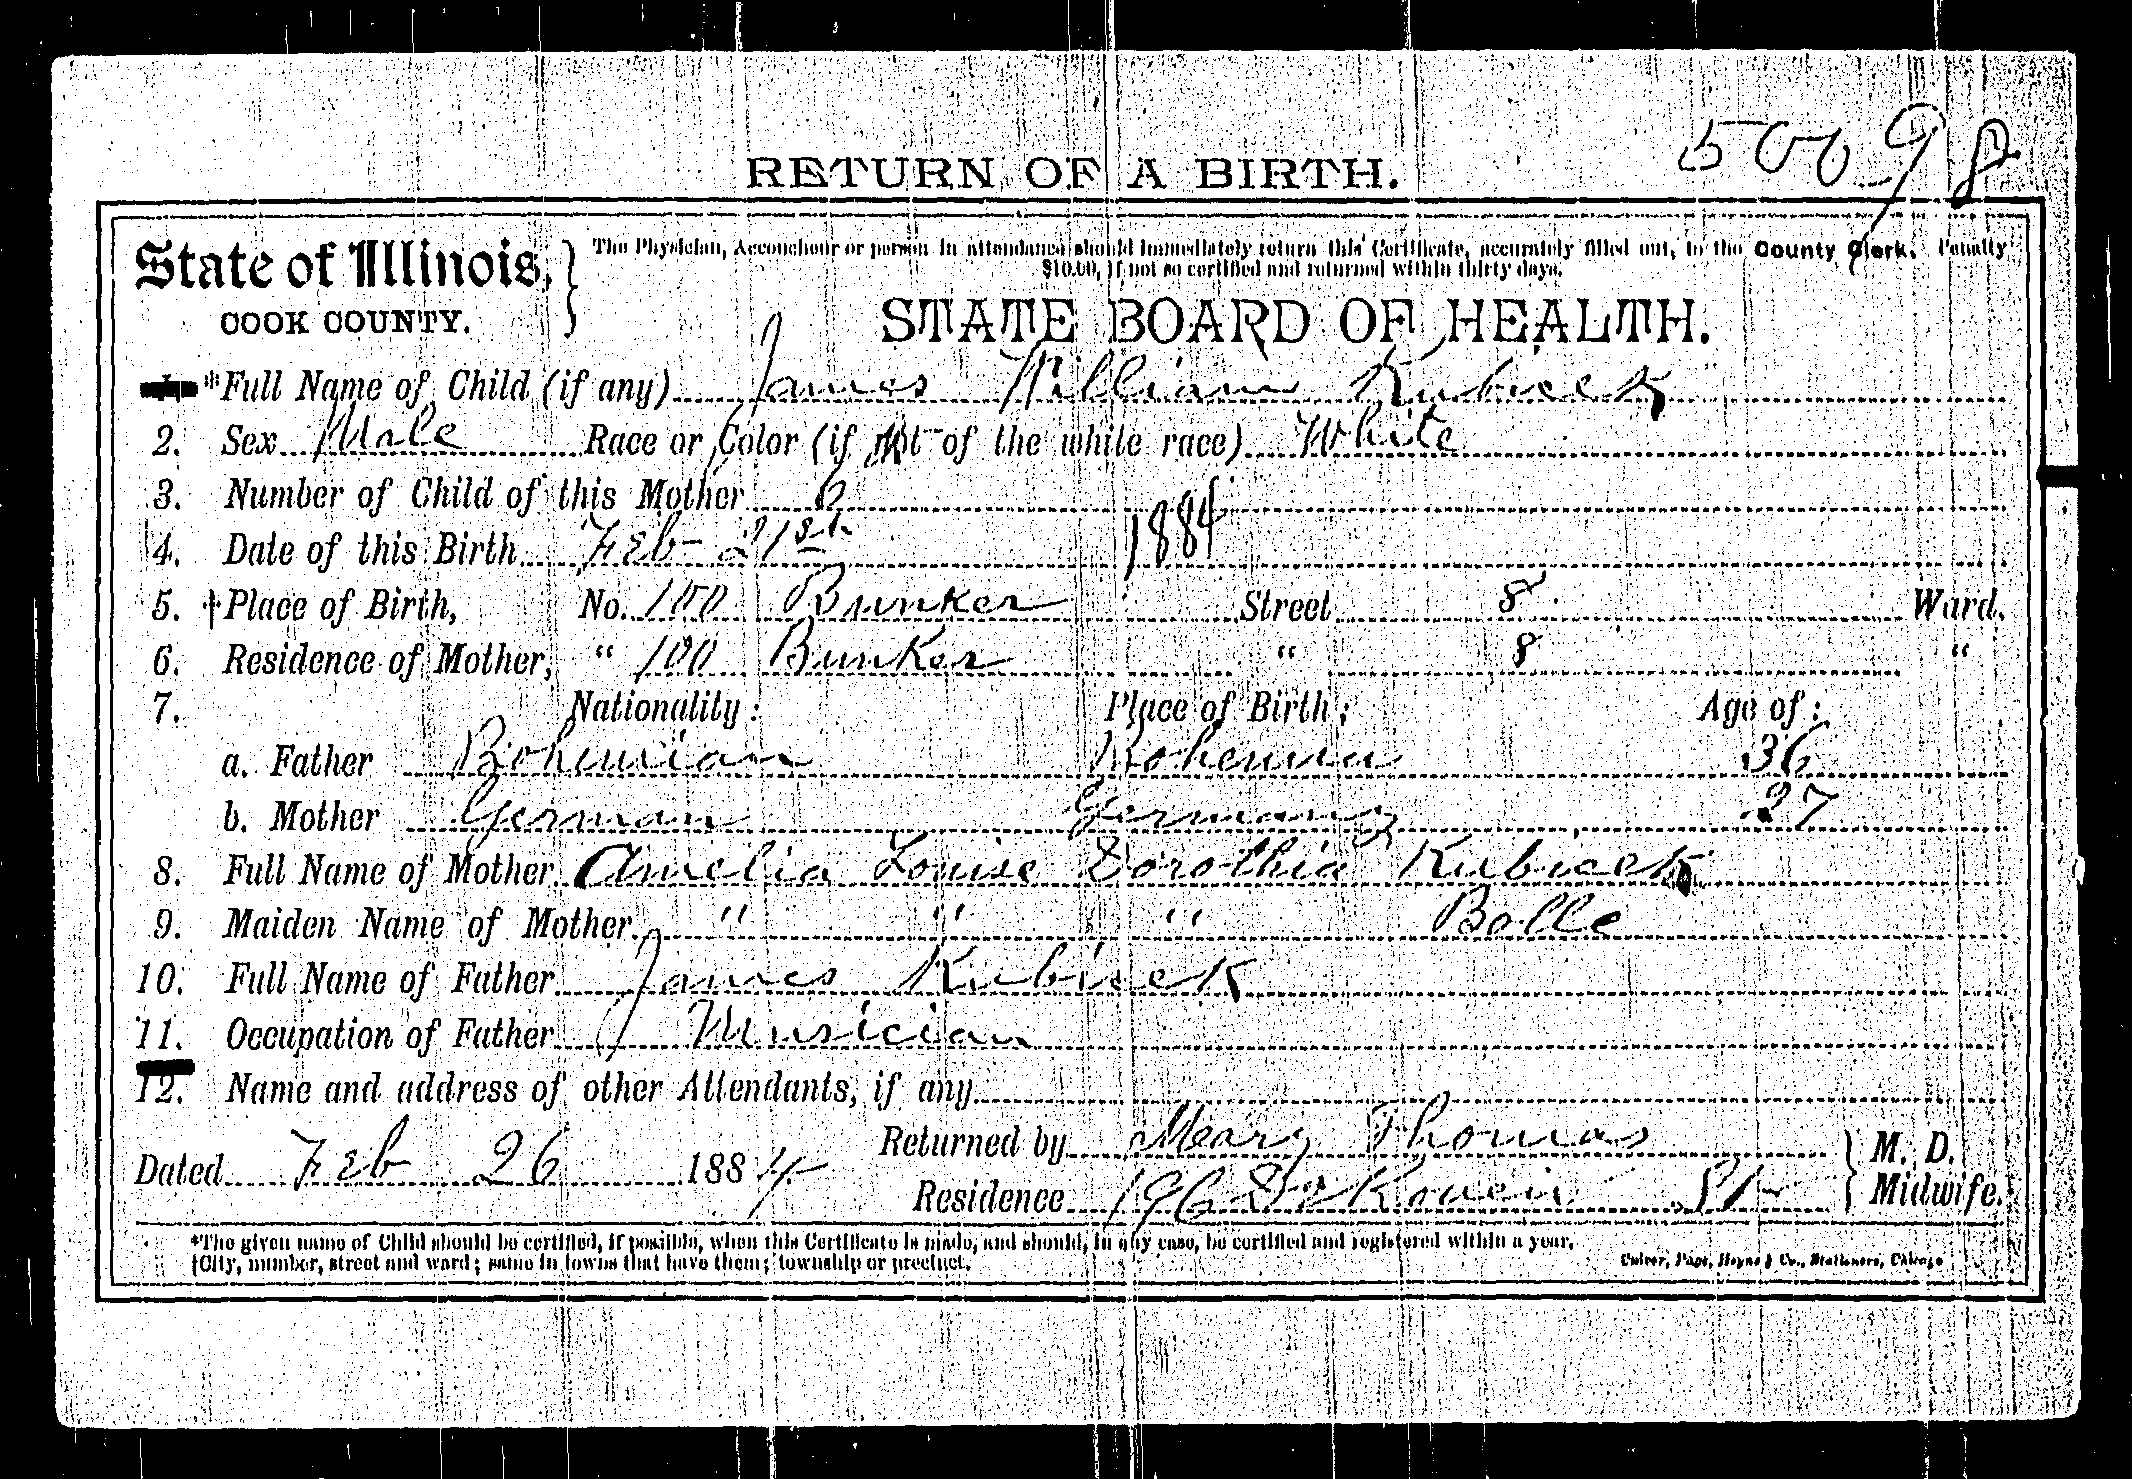 50098
RETURN OF A BIRTH.
State of Illinois,
COOK COUNTY.
The Physician, Accoucheur or person in attendance should immediately return this Certificate, accurately filled out, to the County Clerk. Penalty
$10.00, if not so certified and returned within thirty days.
STATE BOARD OF HEALTH.
*Full Name of Child (if any) James William Kubicek
2. Sex Male Race or Color (if not of the white race) White
3. Number of Child of this Mother 6
4. Date of this Birth Feb 21st 1884
5. †Place of Birth, No. 100 Bunker Street 8 Ward.
6. Residence of Mother, " 100 Bunker " 8 "
7. Nationality: Place of Birth; Age of:
a. Father Bohemian Bohemia 36
b. Mother German Germany 27
8. Full Name of Mother Amelia Louise Dorothia Kubicek
9. Maiden Name of Mother " " " Bolle
10. Full Name of Father James Kubicek
11. Occupation of Father Musician
12. Name and address of other Attendants, if any
Dated Feb 26 1884 Returned by Mary Thomas M. D.
Residence 196 St Midwife.
*The given name of Child should be certified, if possible, when this Certificate is made, and should, in any case, be certified and registered within a year.
†City, number, street and ward; same in towns that have them; township or precinct.
Culver, Page, Hoyne & Co., Stationers, Chicago